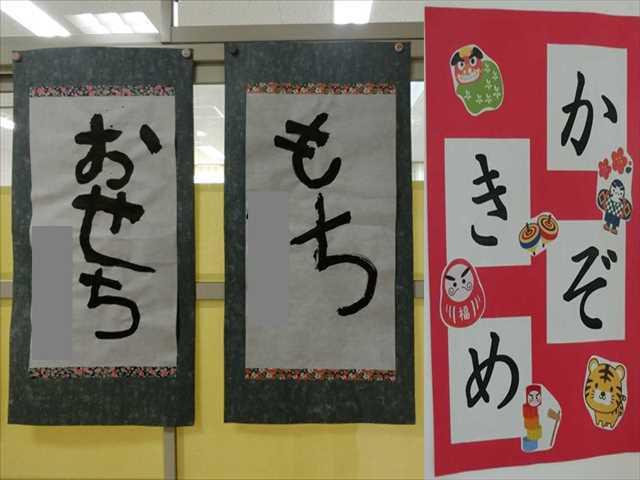 おせち
もち
かきぞめ
福